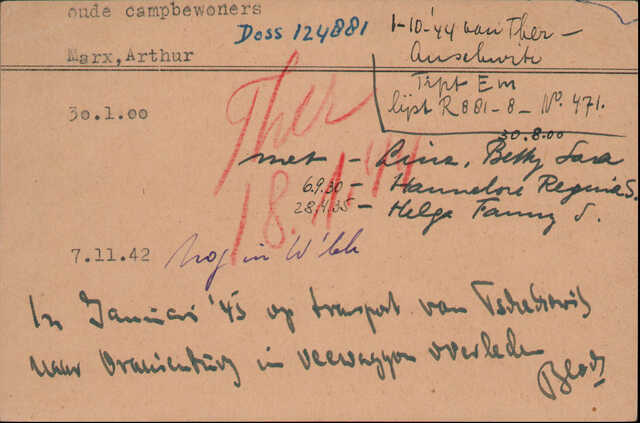 oude campbewoners
Doss 124881
1-10-'44 van Ther-
Auschwitz
Trpt Em
lijst R881-8- No. 471.
Marx,Arthur
30.1.00
Ther
18.1.44
30.8.00
met - Lina, Betty Sara
6.9.30 - Hannelore Regina S.
28.4.35 - Helga Fanny S.
7.11.42 nog in W'bk
In Januari '45 op transport van Tschechowitz
naar Oranienburg in veewaggon overleden